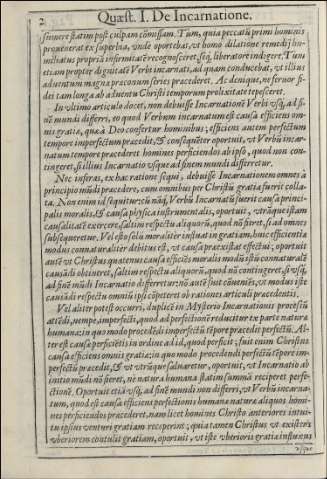 2 Quæst. I. De Incarnatione.
fieri statim post culpam cōmissam. Tum, quia peccatū primi hominis
prouenerat ex superbia, vnde oportebat, vt homo dilatione remedij hu-
miliatus propriā infirmitatē recognosceret, seq; liberatore indigere, Tum
etiam propter dignitatē Verbi incarnati, ad quam conducebat, vt illius
aduentum magna præconum series præcederet. Ac denique, ne feruor fi-
dei tam longa ab aduentu Christi temporum prolixitate tepesceret.
In vltimo articulo docet, non debuisse Incarnationē Verbi vsq; ad fi-
nē mundi differri, eo quod Verbum incarnatum est causa efficiens om-
nis gratiæ, quæ à Deo confertur hominibus; efficiens autem perfectum
tempore imperfectum præcedit, & consequēter oportuit, vt Verbū incar-
natum tempore præcederet homines perficiendos ab ipso, quod non con-
tingeret, si illius Incarnatio vsque ad finem mundi differretur.
Nec inferas, ex hac ratione sequi, debuisse Incarnationem omnes à
principio mūdi præcedere, cum omnibus per Christū gratia fuerit colla-
ta. Non enim id sequitur: cū nāq; Verbū Incarnatū fuerit causa princi-
palis moralis, & causa physica instrumentalis, oportuit, vtrāque istam
causalitatē exercere, saltim respectu aliquorū, quod nō fieret, si ad omnes
subsequeretur. Vel dic solū moraliter influat in gratiam, huic efficientia
modus connaturaliter debitus est, vt causa præexistat effectui; oportuit
autē vt Christus quatenus causa efficiēs moralis modū istū connaturalē
causādi obtineret, saltim respectu aliquorū, quod nō contingeret, si vsq;
ad finē mūdi Incarnatio differretur: nō autē fuit cōueniēs, vt modus iste
causādi respectu omniū ipsi cōpeteret ob rationes articuli præcedentis.
Vel aliter potest occurri, duplicē in Mysterio Incarnationis processū
attēdi, nempe, imperfecti, quod ad perfectionē reducitur ex parte naturæ
humanæ: in quo modo procedēdi imperfectū tēpore præcedit perfectū. Al-
ter est causæ perficiētis in ordine ad id, quod perficit; fuit enim Christus
causa efficiens omnis gratiæ: in quo modo procedendi perfectū tēpore im-
perfectū præcedit, & vt vtrūque saluaretur, oportuit, vt Incarnatio ab
initio mūdi nō fieret, ne natura humana statim summā reciperet perfe-
ctionē. Oportuit etiā vsq; ad finē mundi non differri, vt Verbū incarna-
tum, quod est causa efficiens perfectionis humanæ naturæ aliquos homi-
nes perficiendos præcederet, nam licet homines Christo anteriores intui-
tu ipsius venturi gratiam receperint; quia tamen Christus vt existens
vberiorem contulit gratiam, oportuit, vt iste vberioris gratiæ influxus